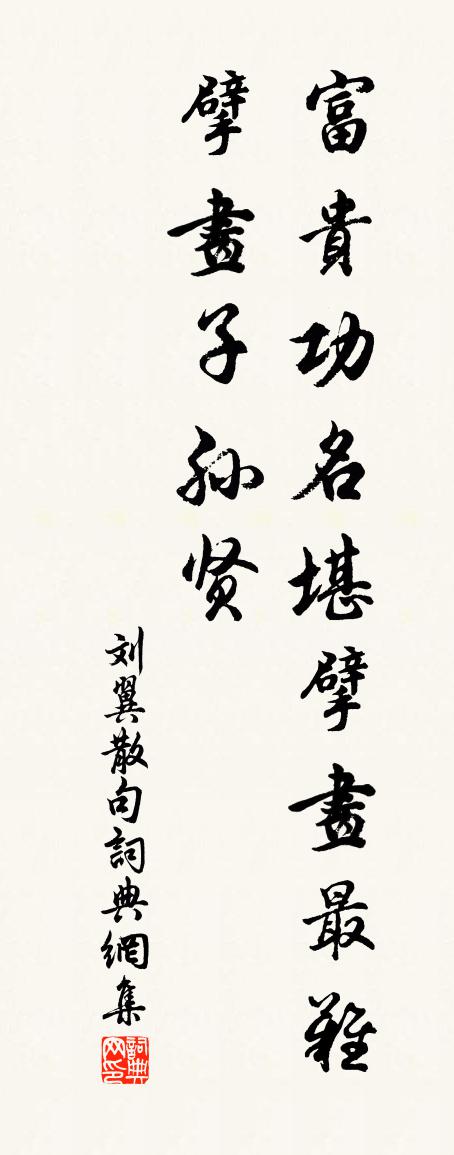 富貴功名堪擘畫最難
擘畫子孫贤
刘翼散句詞典網集
詞典网印